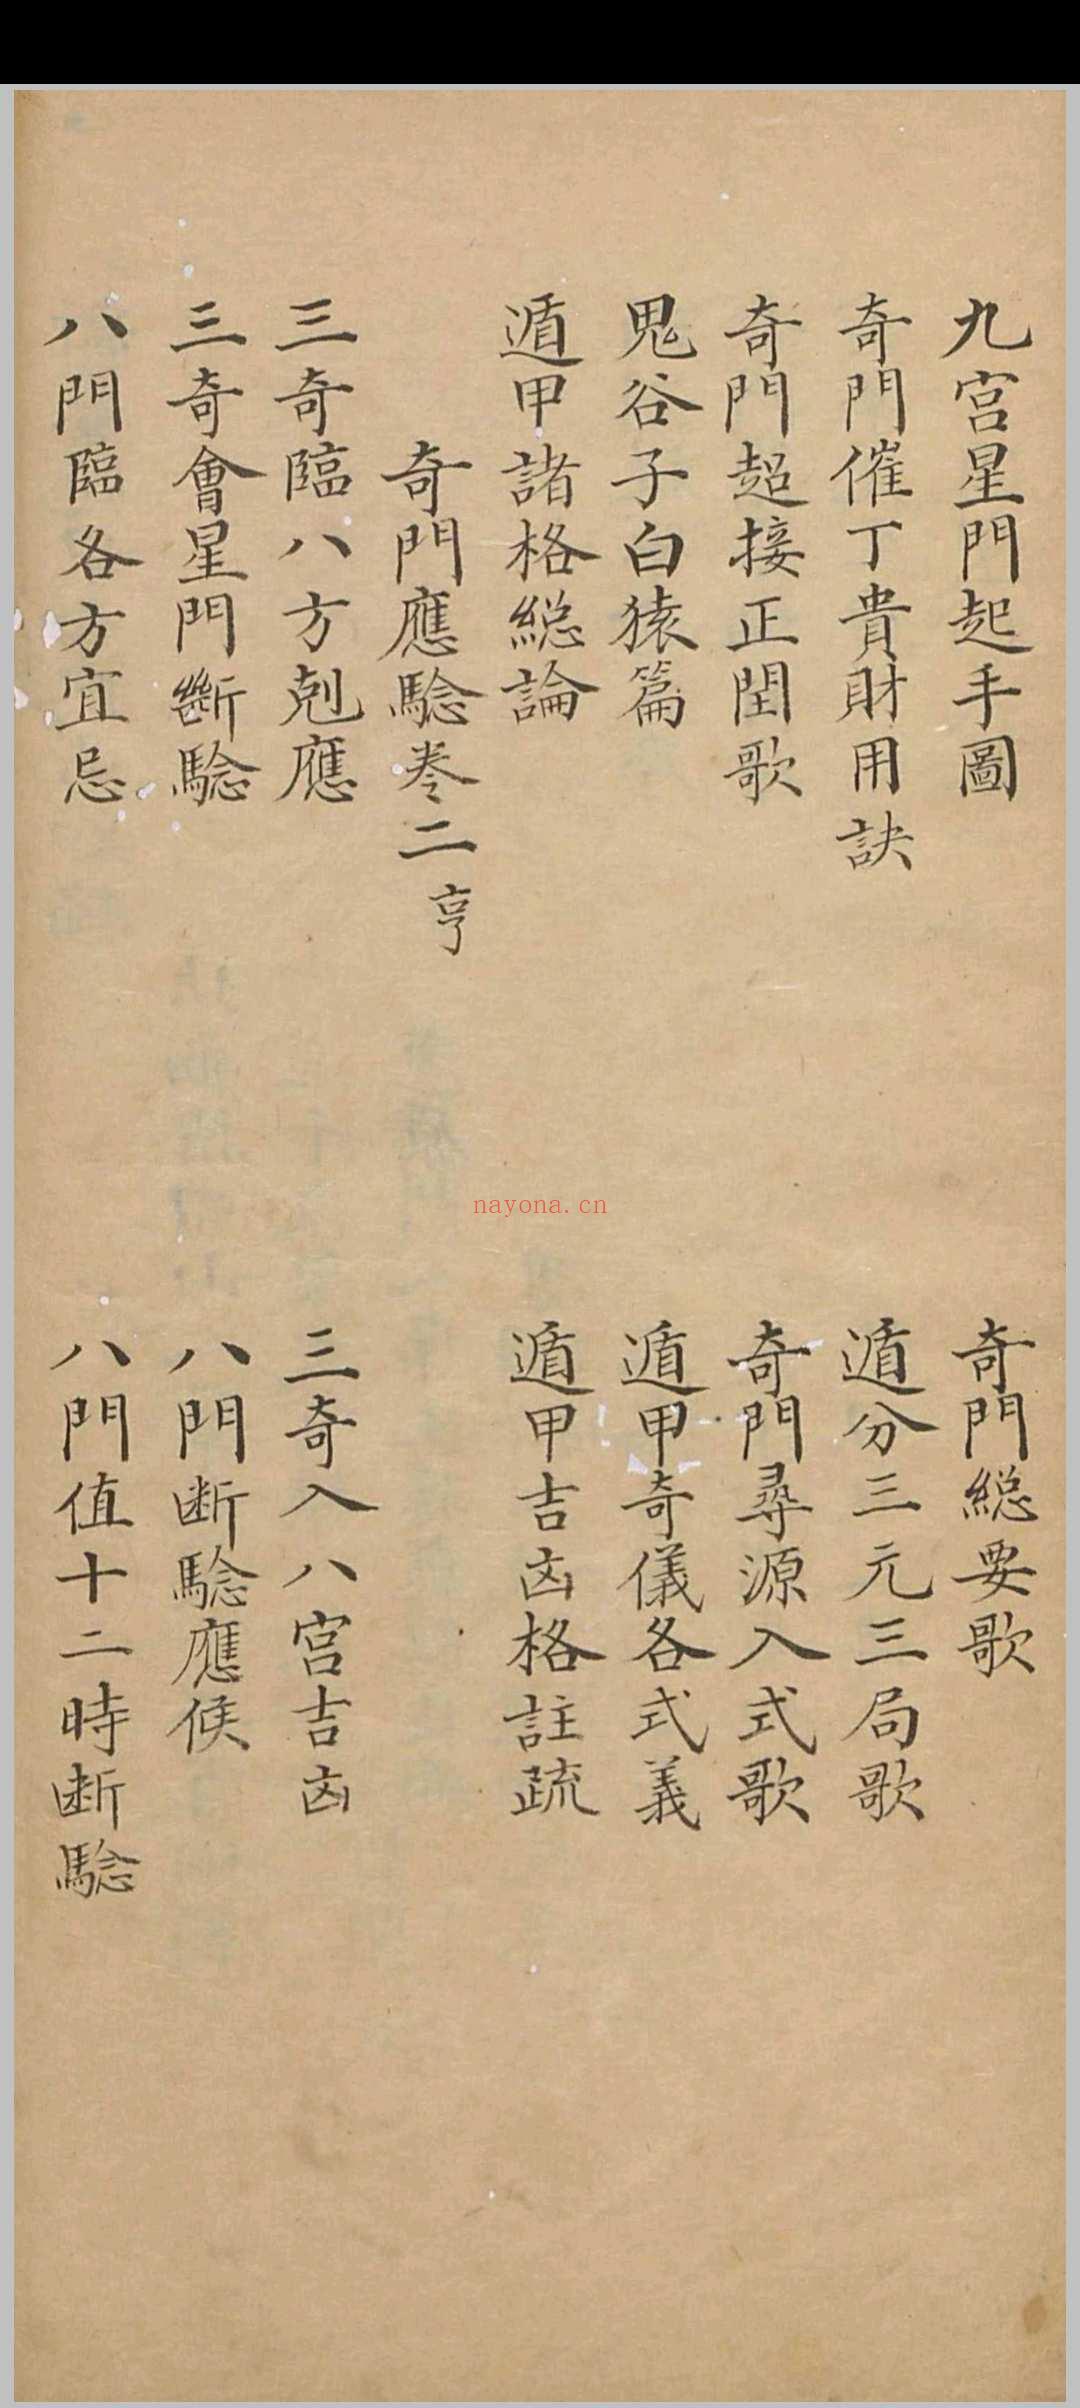 九宮星門起手圖
奇門總要歌
奇門催丁貴財用訣
遁分三元三局歌
奇門超接正閏歌
奇門尋源入式歌
鬼谷子白猿篇
遁甲奇儀各式義
遁甲諸格總論
遁甲吉凶格註疏
奇門應驗卷二 亨
三奇臨八方剋應
三奇入八宮吉凶
三奇會星門斷驗
八門断驗應候
八門臨各方宜忌
八門值十二時断驗
nayona.cn